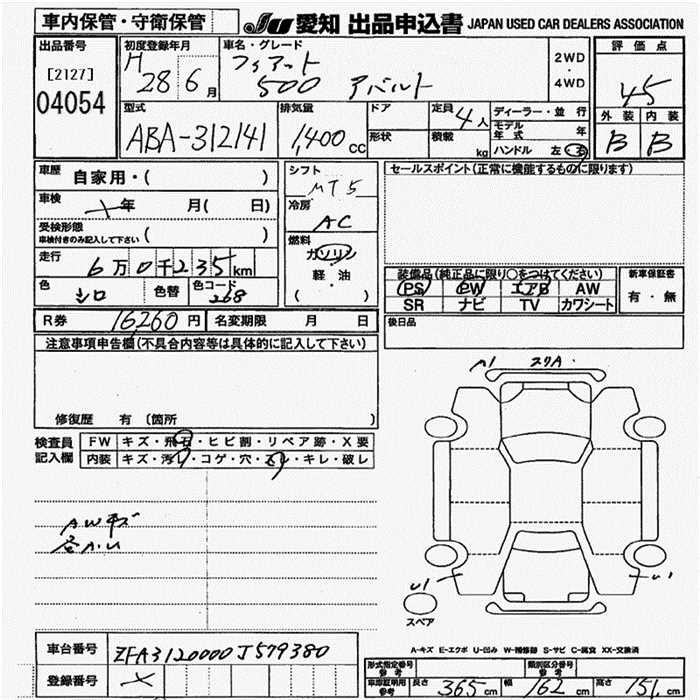 車内保管・守衛保管
JU 愛知 出品申込書 JAPAN USED CAR DEALERS ASSOCIATION
出品番号
[2127]
04054
初度登録年月
H 28 6月
車名・グレード
フィアット
500 アバルト
2WD
・
4WD
評価点
45
外装 内装
B B
型式
ABA-312141
排気量
1,400cc
ドア
形状
定員 4人
積載 kg
ディーラー・並行
モデル年式 年
ハンドル 左・右
車歴 自家用・( )
車検 年 月( 日)
受検形態
車検付きのみ記入して下さい ( )
走行 6万0千235km
色 シロ 色替 色コード 268
シフト
MT5
冷房
AC
燃料
ガソリン
軽・油
( )
セールスポイント(正常に機能するものに限ります)
装備品(純正品に限り○をつけてください)
PS PW エアB AW
SR ナビ TV カワシート
新車保証書
有・無
後日品
R券 16,260円 名変期限 月 日
注意事項申告欄(不具合内容等は具体的に記入して下さい)
修復歴 有 〔箇所 〕
検査員
記入欄
FW キズ・飛石・ヒビ割・リペア跡・X要
内装 キズ・汚レ・コゲ・穴・スレ・キレ・破レ
AWキズ
各A.U
スリA
U1
U1
スペア
A-キズ E-エクボ U-凹み W-補修跡 S-サビ C-腐食 XX-交換済
車台番号 ZFA3120000J579380
登録番号
形式指定番号 参考
類別区分番号 参考
車庫証明用 参考 長さ 365cm 幅 162cm 高さ 151cm